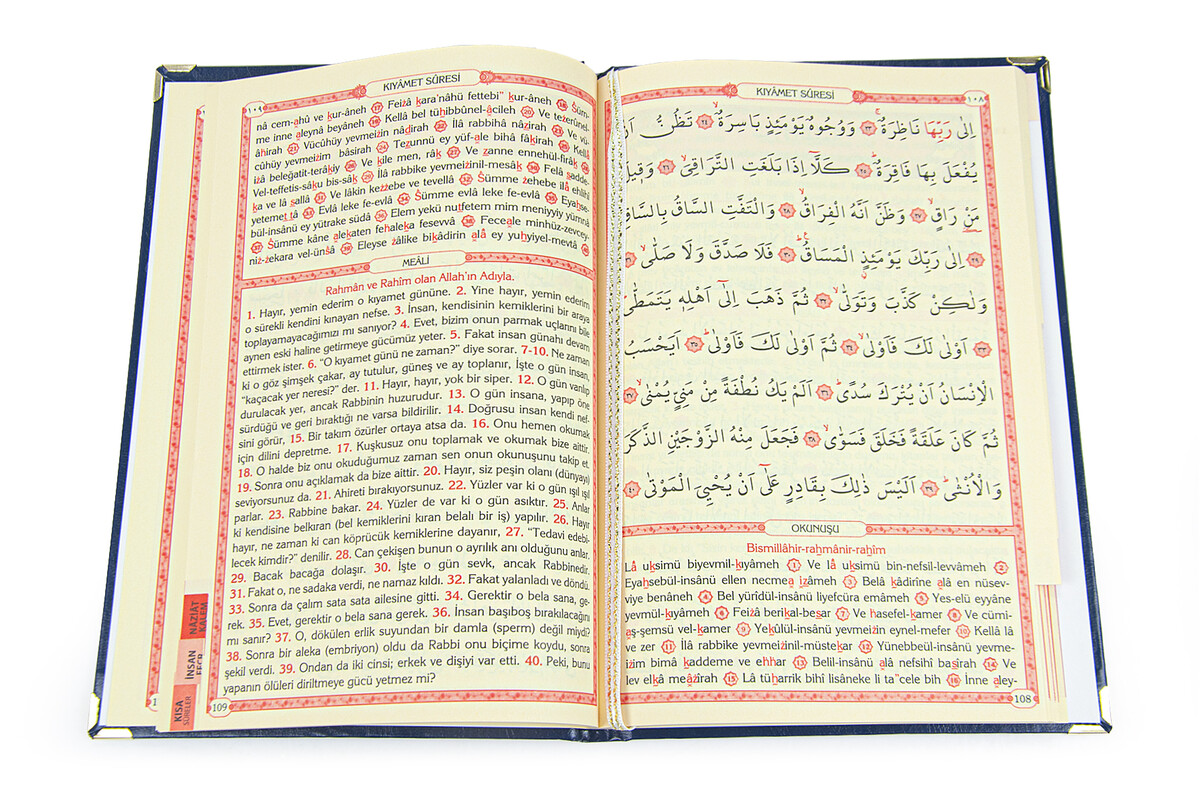 KIYÂMET SÛRESİ
١٠٨
اِلٰى رَبِّهَا نَاظِرَةٌۚ ﴿٢٣﴾ وَوُجُوهٌ يَوْمَئِذٍ بَاسِرَةٌۙ ﴿٢٤﴾ تَظُنُّ اَنْ
يُفْعَلَ بِهَا فَاقِرَةٌۜ ﴿٢٥﴾ كَلَّٓا اِذَا بَلَغَتِ التَّرَاقِيَۙ ﴿٢٦﴾ وَقٖيلَ
مَنْ رَاقٍۙ ﴿٢٧﴾ وَظَنَّ اَنَّهُ الْفِرَاقُۙ ﴿٢٨﴾ وَالْتَفَّتِ السَّاقُ بِالسَّاقِۙ
﴿٢٩﴾ اِلٰى رَبِّكَ يَوْمَئِذٍ الْمَسَاقُۜ ﴿٣٠﴾ فَلَا صَدَّقَ وَلَا صَلّٰىۙ ﴿٣١﴾
وَلٰكِنْ كَذَّبَ وَتَوَلّٰىۙ ﴿٣٢﴾ ثُمَّ ذَهَبَ اِلٰٓى اَهْلِهٖ يَتَمَطّٰىۜ
﴿٣٣﴾ اَوْلٰى لَكَ فَاَوْلٰىۙ ﴿٣٤﴾ ثُمَّ اَوْلٰى لَكَ فَاَوْلٰىۜ ﴿٣٥﴾ اَيَحْسَبُ
الْاِنْسَانُ اَنْ يُتْرَكَ سُدًىۜ ﴿٣٦﴾ اَلَمْ يَكُ نُطْفَةً مِنْ مَنِيٍّ يُمْنٰىۙ ﴿٣٧﴾
ثُمَّ كَانَ عَلَقَةً فَخَلَقَ فَسَوّٰىۙ ﴿٣٨﴾ فَجَعَلَ مِنْهُ الزَّوْجَيْنِ الذَّكَرَ
وَالْاُنْثٰىۜ ﴿٣٩﴾ اَلَيْسَ ذٰلِكَ بِقَادِرٍ عَلٰٓى اَنْ يُحْيِيَ الْمَوْتٰى ﴿٤٠﴾
OKUNUŞU
Bismillâhir-rahmânir-rahîm
Lâ uksimü biyevmil-kıyâmeh 1 Ve lâ uksimü bin-nefsil-levvâmeh 2
Eyahsebül-insânü ellen necmea izâmeh 3 Belâ kâdirîne alâ en nüsev-
viye benâneh 4 Bel yürîdül-insânü liyefcüra emâmeh 5 Yes-elü eyyâne
yevmül-kıyâmeh 6 Feizâ berikal-besar 7 Ve hasefel-kamer 8 Ve cümi-
aş-şemsü vel-kamer 9 Yekûlül-insânü yevmeizin eynel-mefer 10 Kellâ lâ
ve zer 11 İlâ rabbike yevmeizinil-müstekar 12 Yünebbeül-insânü yevme-
izim bimâ kaddeme ve ehhar 13 Belil-insânü alâ nefsihî basîrah 14 Ve
lev elkâ meâzîrah 15 Lâ tüharrik bihî lisâneke li ta"cele bih 16 İnne aley-
108
KIYÂMET SÛRESİ
١٠٩
nâ cem-ahû ve kur-âneh 17 Feizâ kara'nâhü fettebi" kur-âneh 18 Süm-
me inne aleynâ beyâneh 19 Kellâ bel tühibbûnel-âcileh 20 Ve tezerûnel-
âhirah 21 Vücûhüy yevmeizin nâdirah 22 İlâ rabbihâ nâzirah 23 Ve vü-
cûhüy yevmeizim bâsirah 24 Tezunnü ey yüf-ale bihâ fâkırah 25 Kellâ
izâ beleğatit-terâkıy 26 Ve kîle men, râk 27 Ve zanne ennehül-firâk 28
Vel-teffetis-sâku bis-sâk 29 İlâ rabbike yevmeizinil-mesâk 30 Felâ sadde-
ka ve lâ sallâ 31 Ve lâkin kezzebe ve tevellâ 32 Sümme zehebe ilâ ehlihî
yetemettâ 33 Evlâ leke fe-evlâ 34 Sümme evlâ leke fe-evlâ 35 Eyahse-
bül-insânü ey yütrake südâ 36 Elem yekü nutfetem mim meniyyiy yümnâ
37 Sümme kâne alekaten fehaleka fesevvâ 38 Feceale minhüz-zevcey-
niz-zekara vel-ünsâ 39 Eleyse zâlike bikâdirin alâ ey yuhyiyel-mevtâ 40
MEÂLİ
Rahmân ve Rahîm olan Allah'ın Adıyla.
1. Hayır, yemin ederim o kıyamet gününe. 2. Yine hayır, yemin ederim
o sürekli kendini kınayan nefse. 3. İnsan, kendisinin kemiklerini bir araya
toplayamayacağımızı mı sanıyor? 4. Evet, bizim onun parmak uçlarını bile
aynen eski haline getirmeye gücümüz yeter. 5. Fakat insan günahı devam
ettirmek ister. 6. "O kıyamet günü ne zaman?" diye sorar. 7-10. Ne zaman
ki o göz şimşek çakar, ay tutulur, güneş ve ay toplanır, İşte o gün insan,
"kaçacak yer neresi?" der. 11. Hayır, hayır, yok bir siper. 12. O gün varılıp
durulacak yer, ancak Rabbinin huzurudur. 13. O gün insana, yapıp öne
sürdüğü ve geri bıraktığı ne varsa bildirilir. 14. Doğrusu insan kendi nef-
sini görür, 15. Bir takım özürler ortaya atsa da. 16. Onu hemen okumak
için dilini depretme. 17. Kuşkusuz onu toplamak ve okumak bize aittir.
18. O halde biz onu okuduğumuz zaman sen onun okunuşunu takip et.
19. Sonra onu açıklamak da bize aittir. 20. Hayır, siz peşin olanı (dünyayı)
seviyorsunuz da. 21. Ahireti bırakıyorsunuz. 22. Yüzler var ki o gün ışıl ışıl
parlar. 23. Rabbine bakar. 24. Yüzler de var ki o gün asıktır. 25. Anlar
ki kendisine belkıran (bel kemiklerini kıran belalı bir iş) yapılır. 26. Hayır
hayır, ne zaman ki can köprücük kemiklerine dayanır, 27. "Tedavi edebi-
lecek kimdir?" denilir. 28. Can çekişen bunun o ayrılık anı olduğunu anlar.
29. Bacak bacağa dolaşır. 30. İşte o gün sevk, ancak Rabbinedir.
31. Fakat o, ne sadaka verdi, ne namaz kıldı. 32. Fakat yalanladı ve döndü.
33. Sonra da çalım sata sata ailesine gitti. 34. Gerektir o bela sana, ge-
rek. 35. Evet, gerektir o bela sana gerek. 36. İnsan başıboş bırakılacağını
mı sanır? 37. O, dökülen erlik suyundan bir damla (sperm) değil miydi?
38. Sonra bir aleka (embriyon) oldu da Rabbi onu biçime koydu, sonra
şekil verdi. 39. Ondan da iki cinsi; erkek ve dişiyi var etti. 40. Peki, bunu
yapanın ölüleri diriltmeye gücü yetmez mi?
109
NÂZİÂT
KALEM
İNSAN
FECR
KISA
SÛRELER